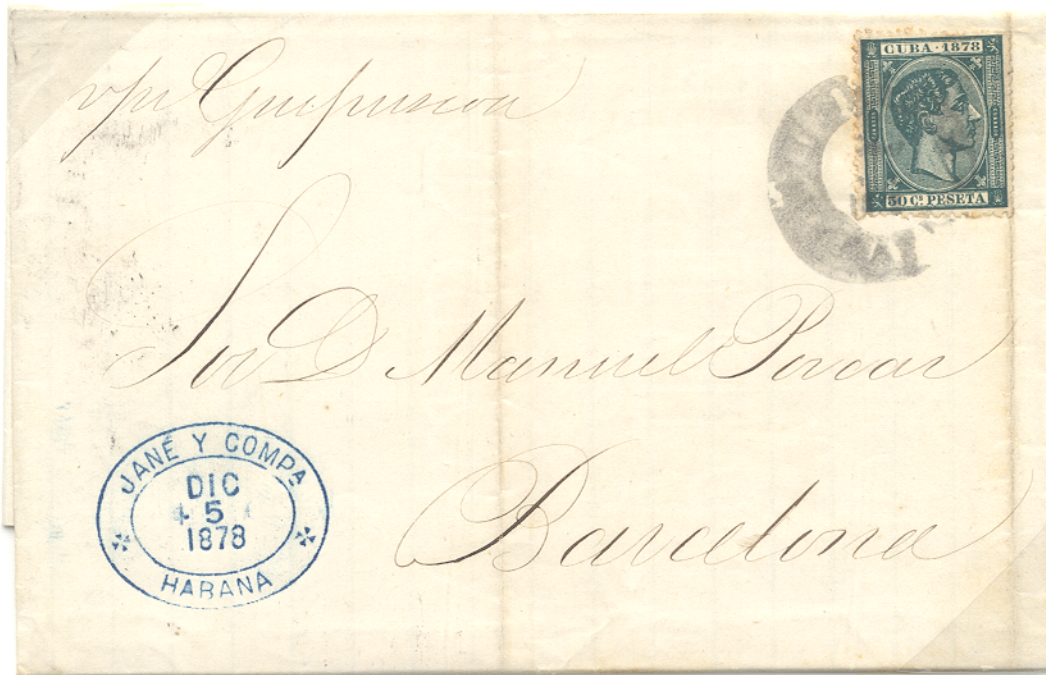 v/p Guipuzcoa
CUBA · 1878
50 Cs PESETA
Sor D Manuel Porcar
Barcelona
JANÉ Y COMPA
DIC
5
1878
HABANA